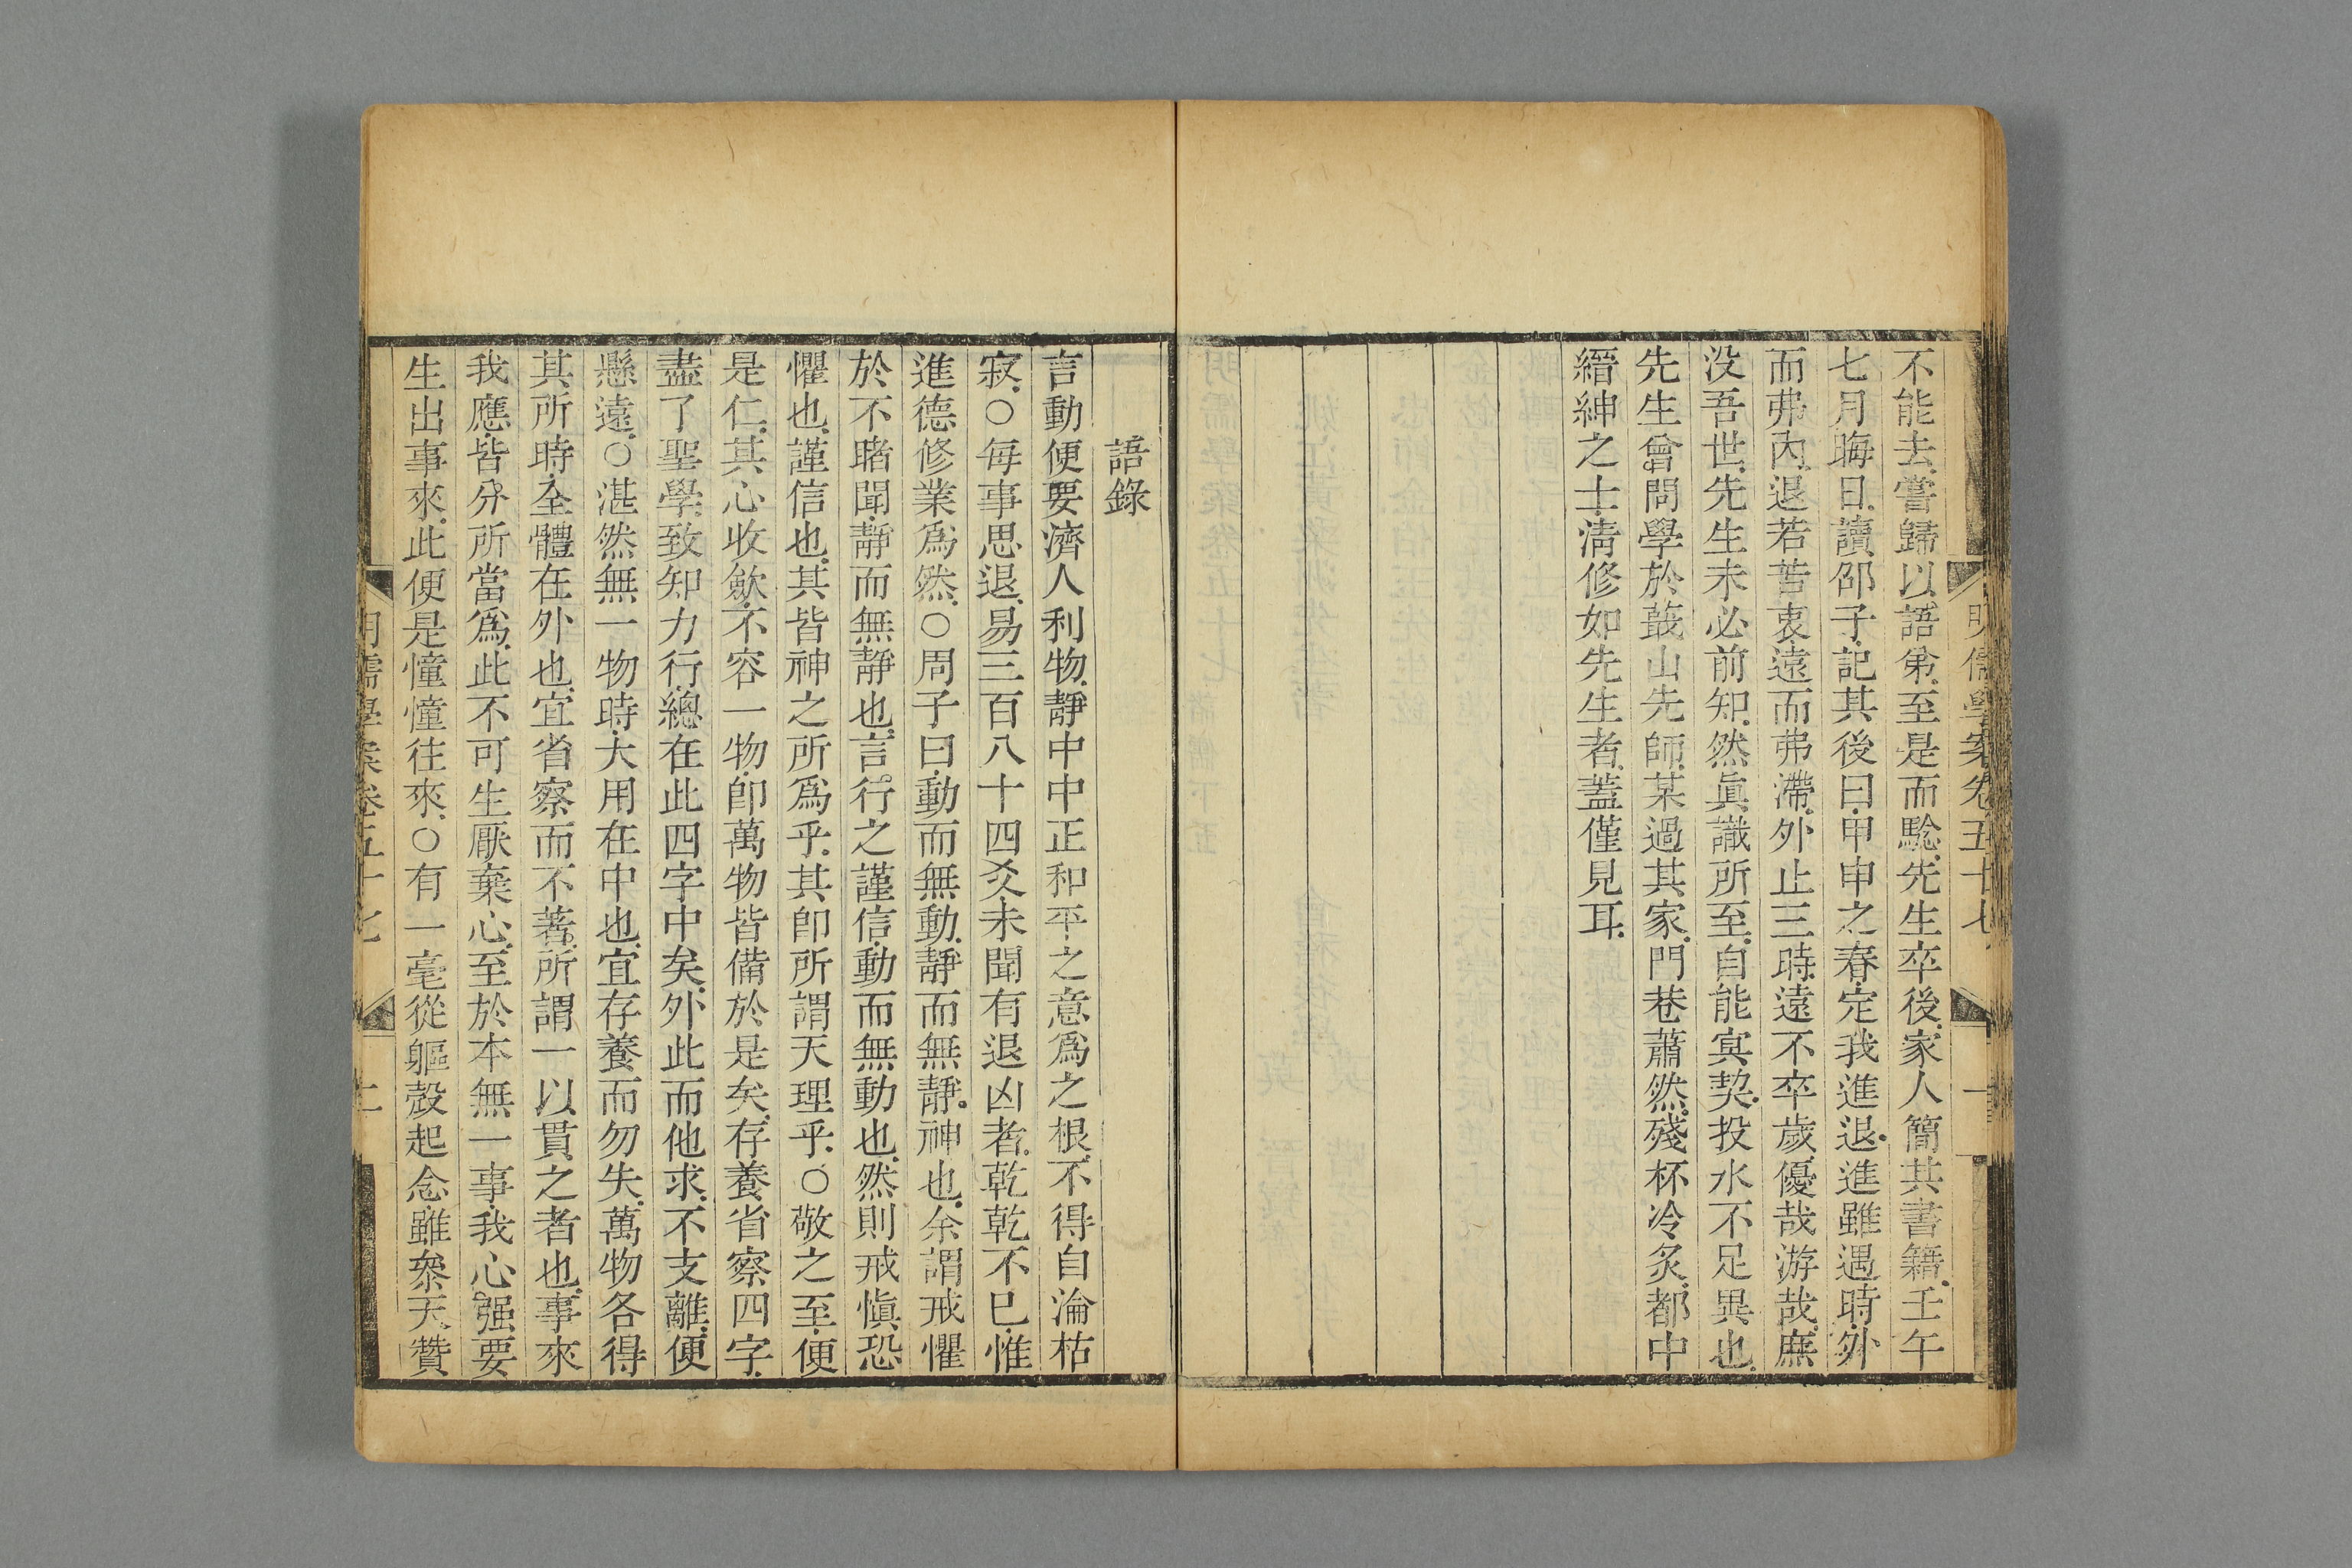 明儒學案卷五十七
不能去嘗歸以語弟至是而驗先生卒後家人簡其書籍壬午
七月晦日讀邵子記其後曰甲申之春定我進退進雖遇時外
而弗內退若苦衷遠而弗滯外止三時遠不卒歲優哉游哉庶
没吾世先生未必前知然眞識所至自能㝠契投水不足異也
先生曾問學於蕺山先師某過其家門巷蕭然殘杯冷炙都中
縉紳之士淸修如先生者蓋僅見耳
語錄
言動便要濟人利物靜中中正和平之意爲之根不得自淪枯
寂○每事思退易三百八十四爻未聞有退凶者乾乾不已惟
進德修業爲然○周子曰動而無動靜而無靜神也余謂戒懼
於不睹聞靜而無靜也言行之謹信動而無動也然則戒愼恐
懼也謹信也其皆神之所爲乎其卽所謂天理乎○敬之至便
是仁其心收斂不容一物卽萬物皆備於是矣存養省察四字
盡了聖學致知力行總在此四字中矣外此而他求不支離便
懸遠○湛然無一物時大用在中也宜存養而勿失萬物各得
其所時全體在外也宜省察而不著所謂一以貫之者也事來
我應皆分所當爲此不可生厭棄心至於本無一事我心强要
生出事來此便是憧憧往來○有一毫從軀殻起念雖叅天贊
明儒學案卷五十七 二